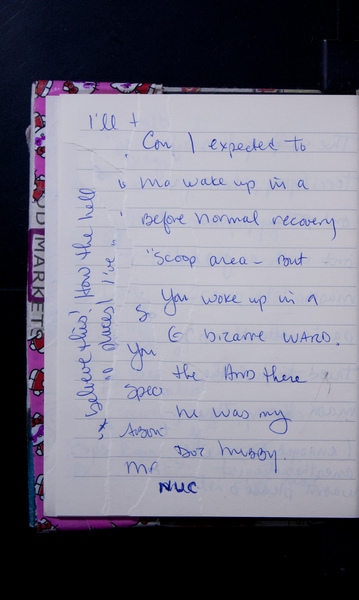 I'll t
Con I expected to
ma wake up in a
Before normal recovery
"scoop area - But
You woke up in a
S
G bizarre WARD.
You
the And there
Spec
he was my
hubby.
Mr
NUC
Believe this! How the hell
places! I've
D MARKETS